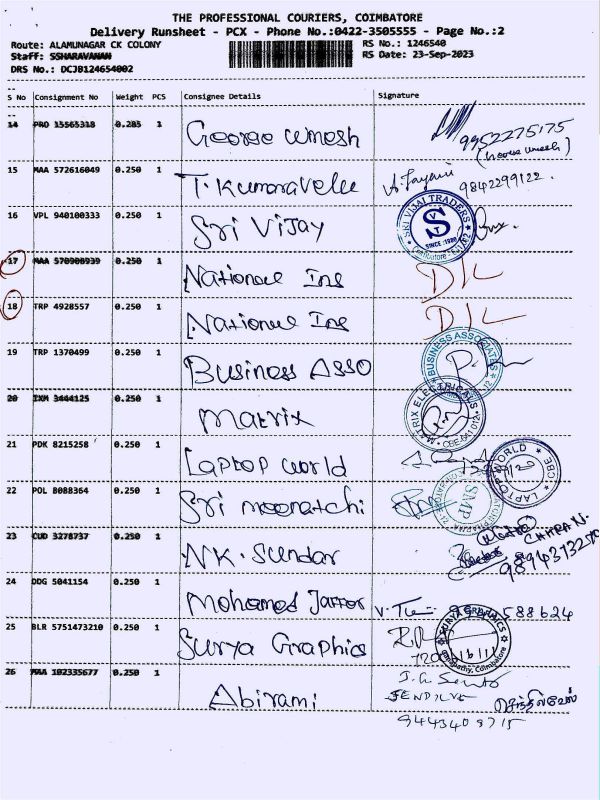 THE PROFESSIONAL COURIERS, COIMBATORE
Delivery Runsheet - PCX - Phone No.:0422-3505555 - Page No.:2
Route: ALAMUNAGAR CK COLONY RS No.: 1246540
Staff: SSHARAVANAN RS Date: 23-Sep-2023
DRS No.: DCJB124654002
S No Consignment No Weight PCS Consignee Details Signature
14 PRO 15565318 0.285 1 George Umesh 9952275175
(George Umesh)
15 MAA 572616049 0.250 1 T. Kumaravelu 9842299122.
16 VPL 940100333 0.250 1 Sri Vijay SRI VIJAI TRADERS SVT SINCE :1980
17 MAA 570908939 0.250 1 National Ins D/L
18 TRP 4928557 0.250 1 National Ins D/L
19 TRP 1370499 0.250 1 Business Asso BUSINESS ASSOCIATES
20 IXM 3444125 0.250 1 Matrix MATRIX ELECTRICALS CBE-641 012
21 PDK 8215258 0.250 1 Laptop world LAPTOP WORLD CBE
22 POL 8088364 0.250 1 Sri meenatchi SMP
23 CUD 3278737 0.250 1 NK. Sundar
24 DDG 5041154 0.250 1 Mohamed Jaffer 588624
25 BLR 5751473210 0.250 1 Surya Graphics SURYA GRAPHICS Coimbatore
26 MAA 102335677 0.250 1 Abirami
செந்தில்வேல்